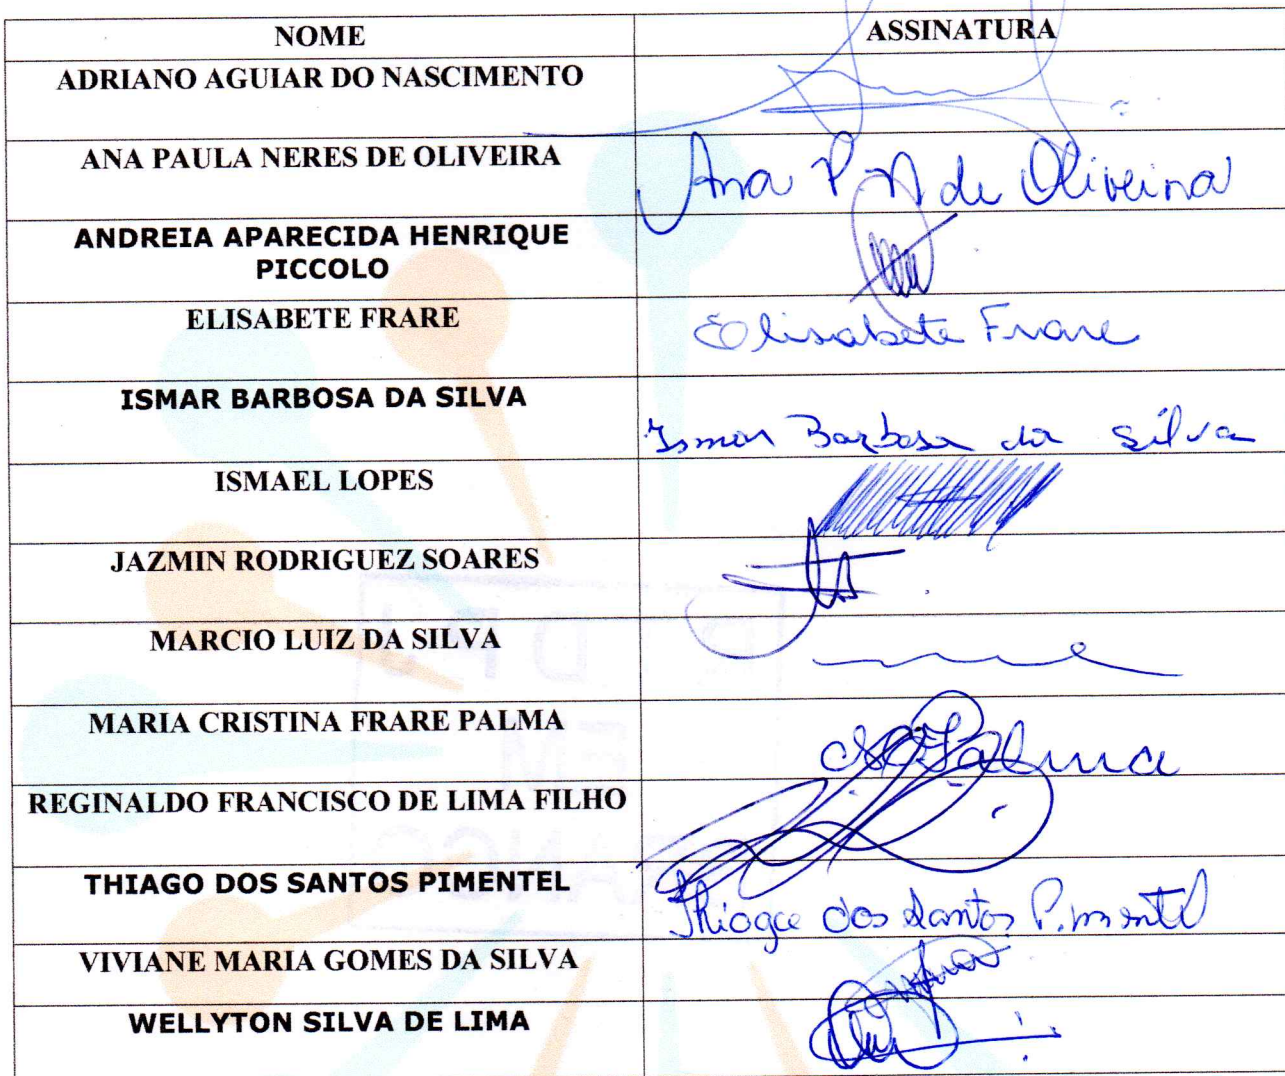 NOME ASSINATURA
ADRIANO AGUIAR DO NASCIMENTO
ANA PAULA NERES DE OLIVEIRA Ana P. N de Oliveira
ANDREIA APARECIDA HENRIQUE
PICCOLO
ELISABETE FRARE Elisabete Frare
ISMAR BARBOSA DA SILVA Ismar Barbosa da Silva
ISMAEL LOPES
JAZMIN RODRIGUEZ SOARES
MARCIO LUIZ DA SILVA
MARIA CRISTINA FRARE PALMA Palma
REGINALDO FRANCISCO DE LIMA FILHO
THIAGO DOS SANTOS PIMENTEL Thiago dos Santos Pimentel
VIVIANE MARIA GOMES DA SILVA
WELLYTON SILVA DE LIMA